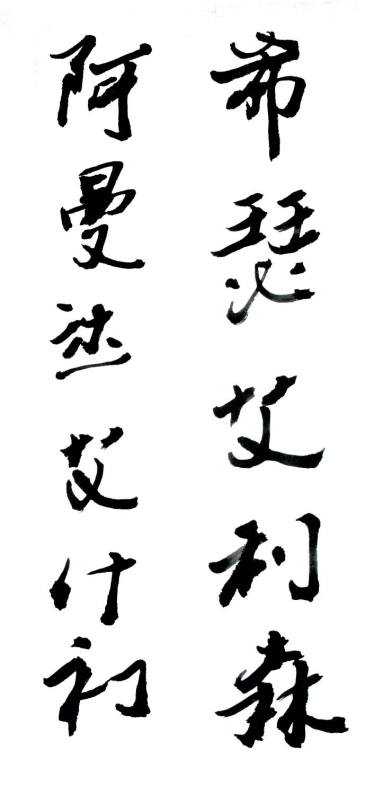 希瑟艾利森
阿曼达艾什